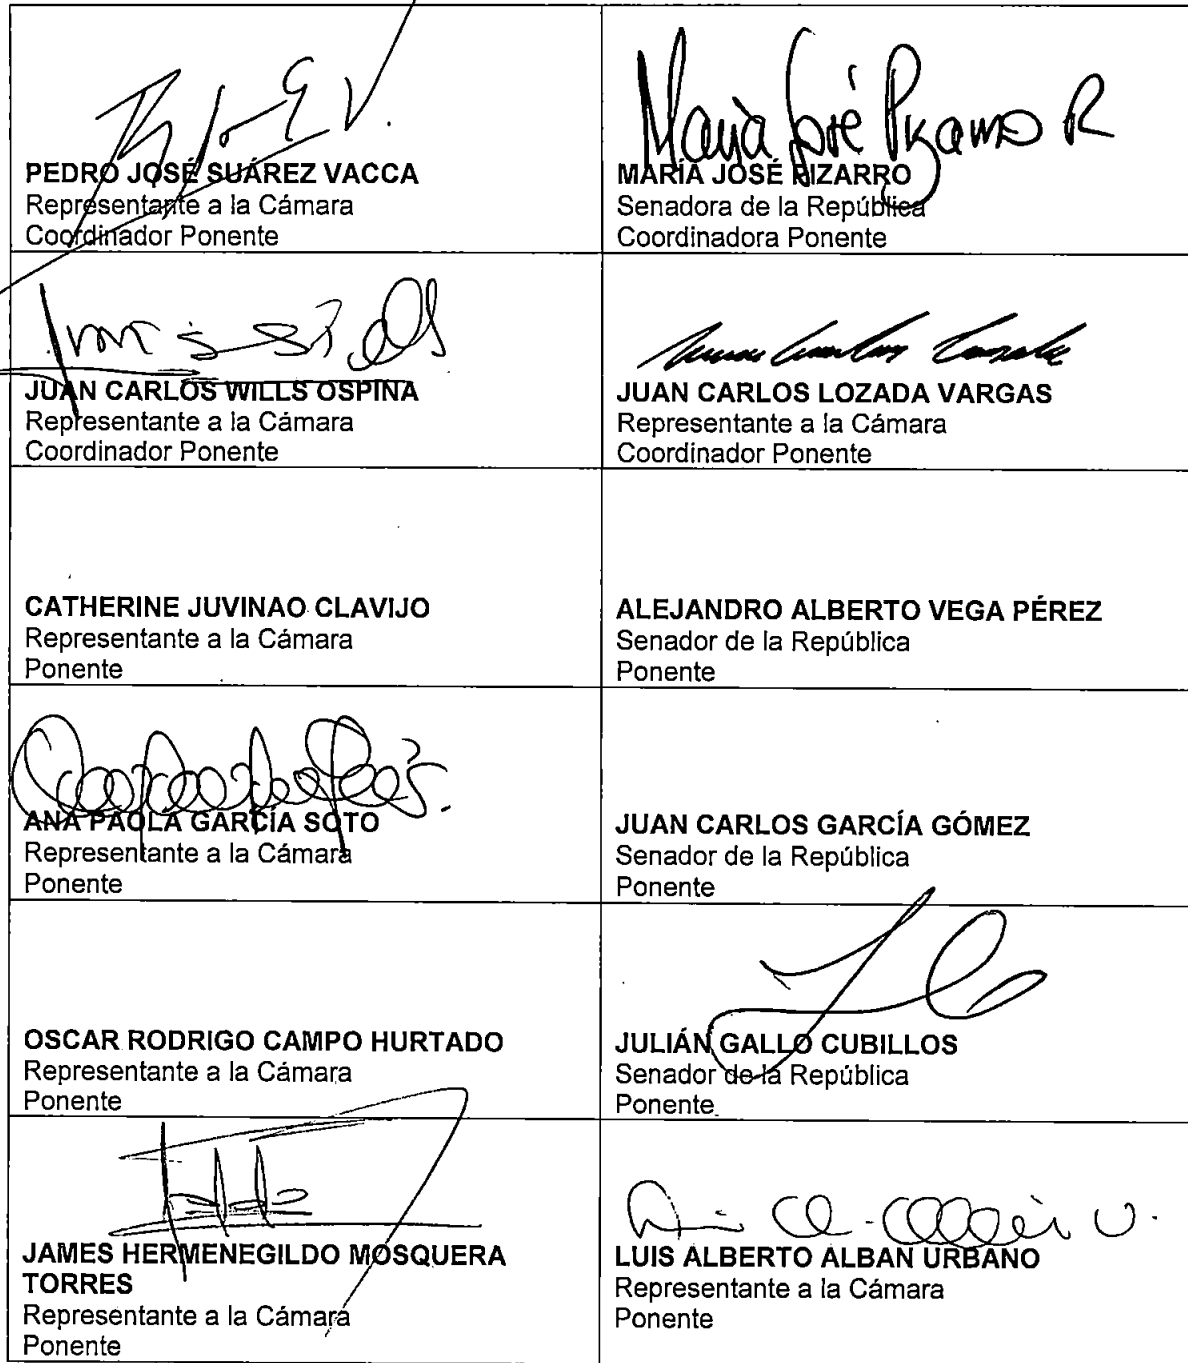 PEDRO JOSÉ SUÁREZ VACCA
Representante a la Cámara
Coordinador Ponente
María José Pizarro R
MARÍA JOSÉ PIZARRO
Senadora de la República
Coordinadora Ponente
JUAN CARLOS WILLS OSPINA
Representante a la Cámara
Coordinador Ponente
JUAN CARLOS LOZADA VARGAS
Representante a la Cámara
Coordinador Ponente
CATHERINE JUVINAO CLAVIJO
Representante a la Cámara
Ponente
ALEJANDRO ALBERTO VEGA PÉREZ
Senador de la República
Ponente
ANA PAOLA GARCÍA SOTO
Representante a la Cámara
Ponente
JUAN CARLOS GARCÍA GÓMEZ
Senador de la República
Ponente
OSCAR RODRIGO CAMPO HURTADO
Representante a la Cámara
Ponente
JULIÁN GALLO CUBILLOS
Senador de la República
Ponente
JAMES HERMENEGILDO MOSQUERA
TORRES
Representante a la Cámara
Ponente
LUIS ALBERTO ALBAN URBANO
Representante a la Cámara
Ponente